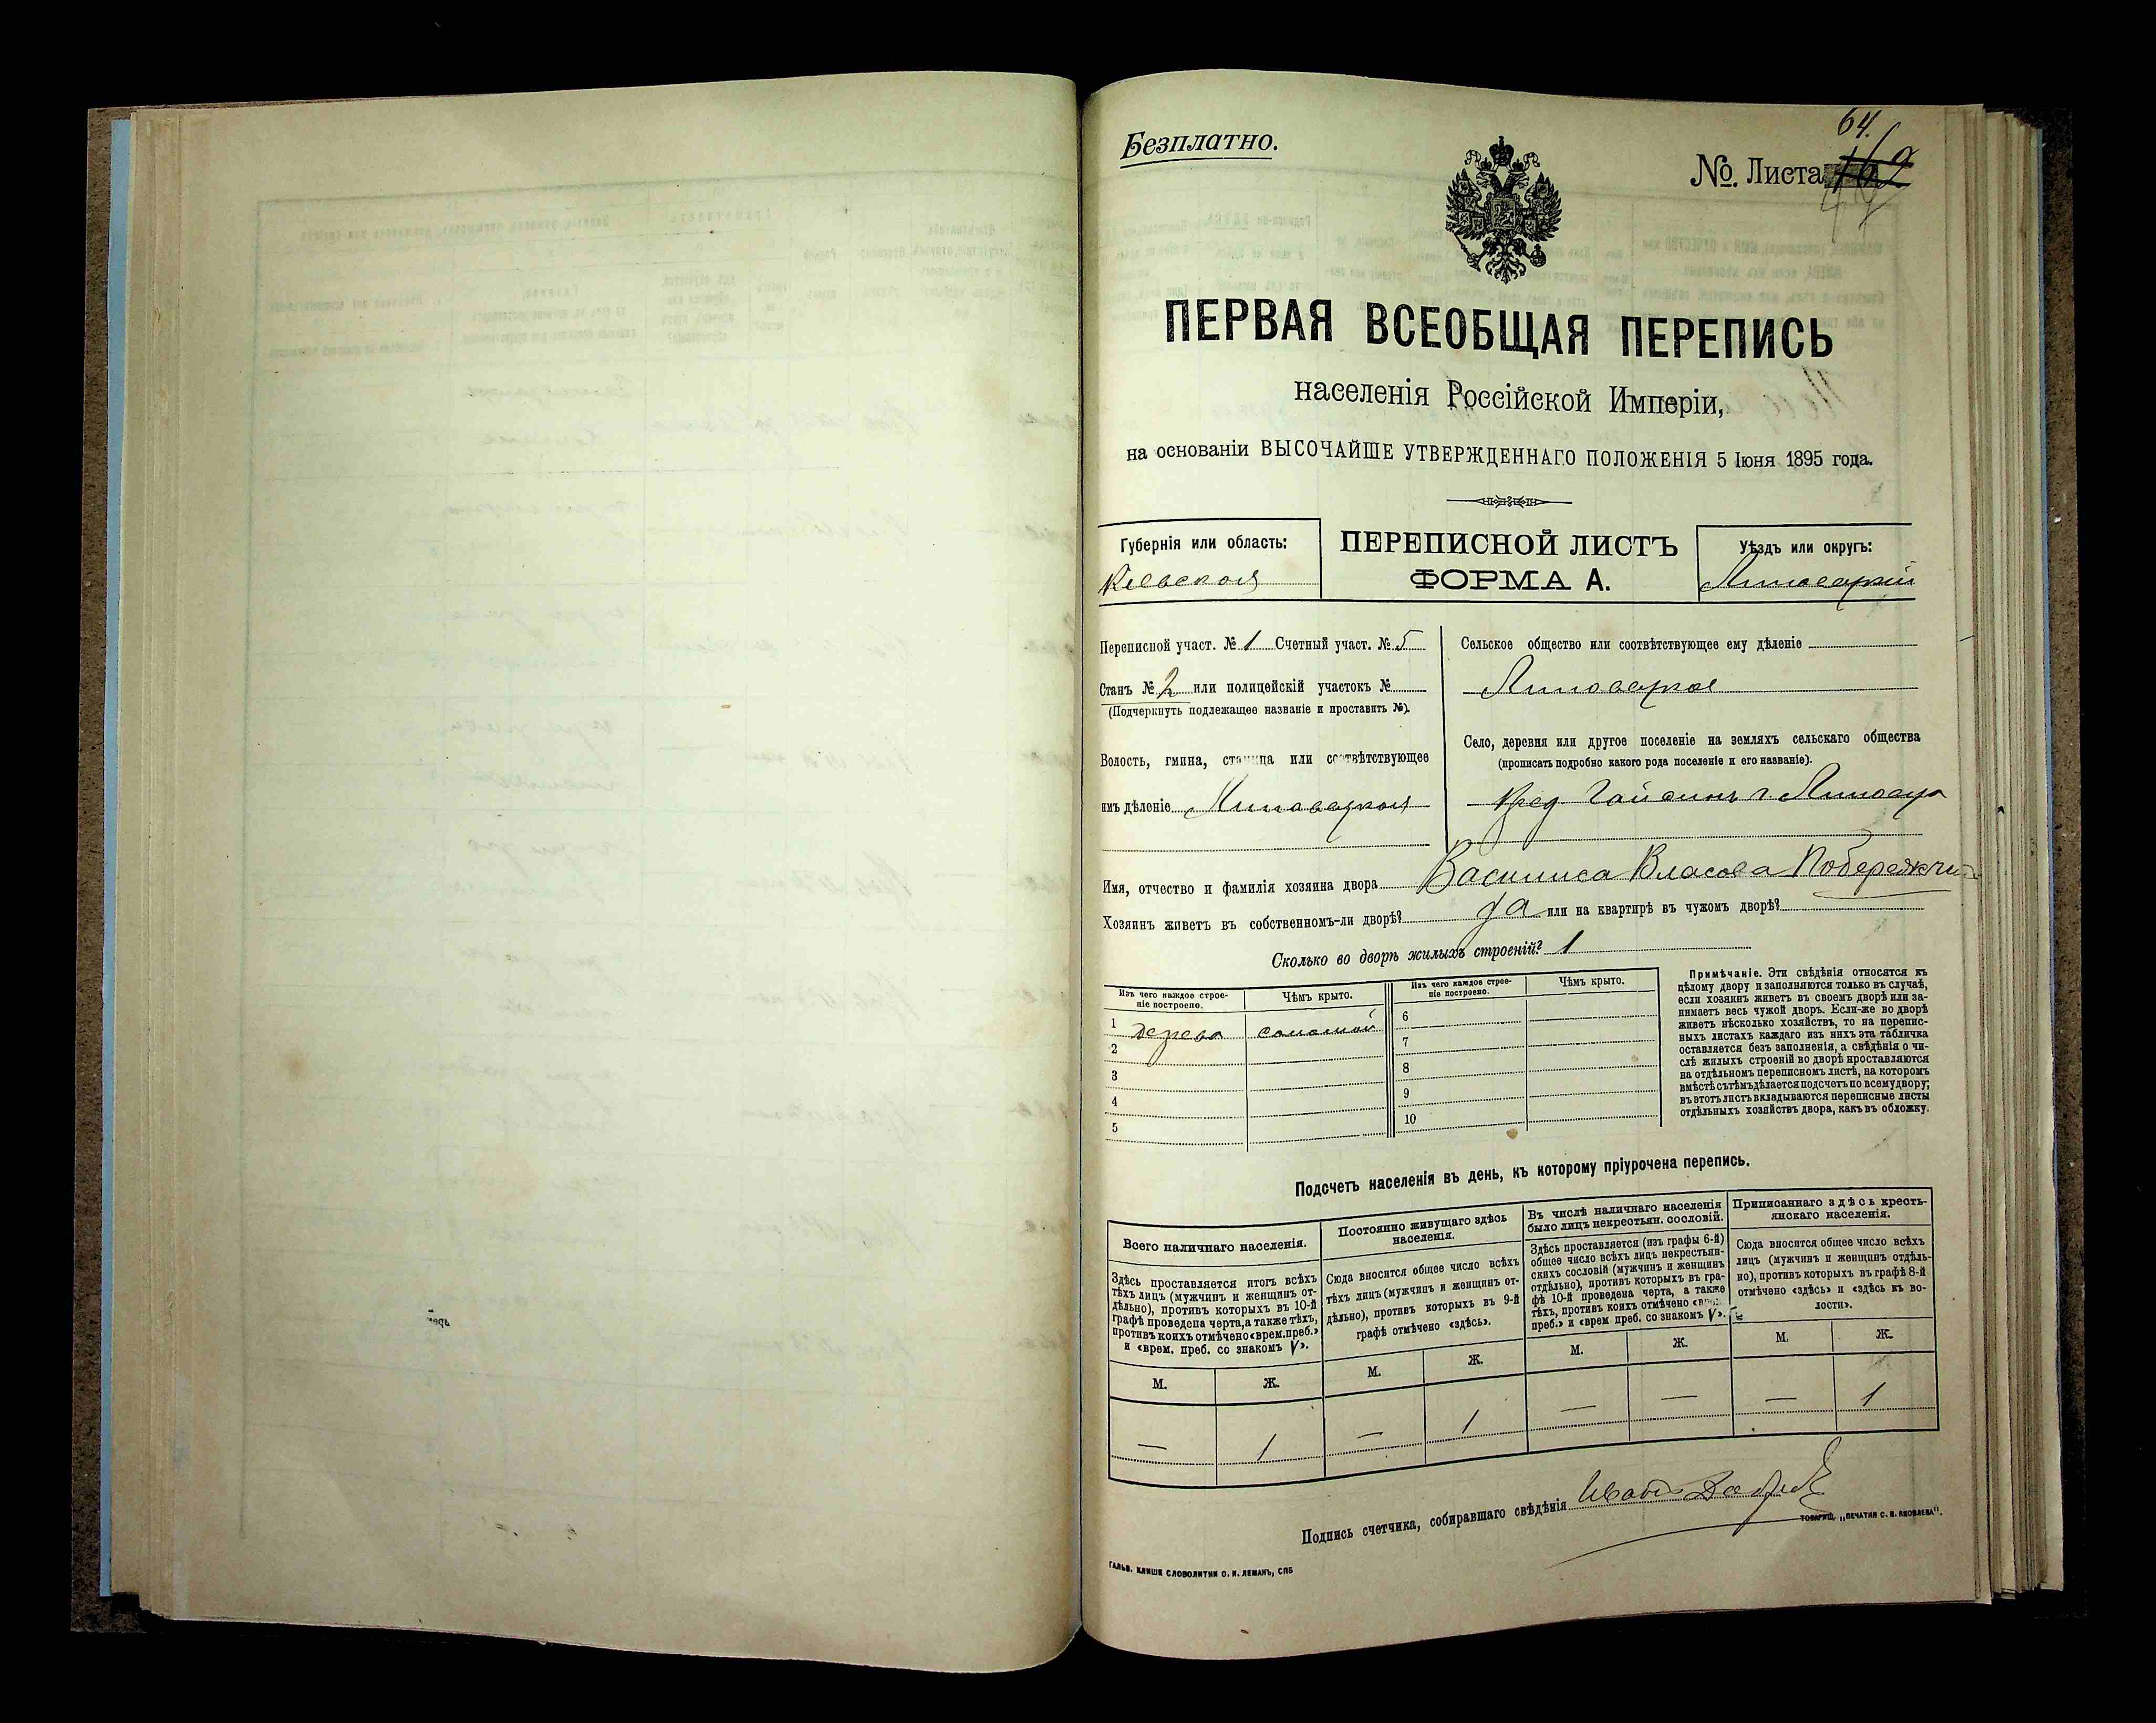 Безплатно.
64.
№. Листа
ПЕРВАЯ ВСЕОБЩАЯ ПЕРЕПИСЬ
населенія Россійской Имперіи,
на основаніи ВЫСОЧАЙШЕ УТВЕРЖДЕННАГО ПОЛОЖЕНІЯ 5 Іюня 1895 года.
Губернія или область:
Кіевская
ПЕРЕПИСНОЙ ЛИСТЪ
ФОРМА А.
Уѣздъ или округъ:
Липовецкій
Переписной участ. № 1 Счетный участ. № 5
Станъ № 2 или полицейскій участокъ №
(Подчеркнуть подлежащее названіе и проставить №).
Волость, гмина, станица или соотвѣтствующее
имъ дѣленіе Липовецкая
Сельское общество или соотвѣтствующее ему дѣленіе
Липовецкое
Село, деревня или другое поселеніе на земляхъ сельскаго общества
(прописать подробно какого рода поселеніе и его названіе).
пред. Гайсинъ г. Липовца
Имя, отчество и фамилія хозяина двора Василиса Власова Побережна
Хозяинъ живетъ въ собственномъ-ли дворѣ? да или на квартирѣ въ чужомъ дворѣ?
Сколько во дворѣ жилыхъ строеній? 1
Изъ чего каждое строе-
ніе построено.
Чѣмъ крыто.
Изъ чего каждое строе-
ніе построено.
Чѣмъ крыто.
1 дерева соломой
2
3
4
5
6
7
8
9
10
Примѣчаніе. Эти свѣдѣнія относятся къ
цѣлому двору и заполняются только въ случаѣ,
если хозяинъ живетъ въ своемъ дворѣ или за-
нимаетъ весь чужой дворъ. Если-же во дворѣ
живетъ нѣсколько хозяйствъ, то на перепис-
ныхъ листахъ каждаго изъ нихъ эта табличка
оставляется безъ заполненія, а свѣдѣнія о чи-
слѣ жилыхъ строеній во дворѣ проставляются
на отдѣльномъ переписномъ листѣ, на которомъ
вмѣстѣ съ тѣмъ дѣлается подсчетъ по всему двору;
въ этотъ листъ вкладываются переписные листы
отдѣльныхъ хозяйствъ двора, какъ въ обложку.
Подсчетъ населенія въ день, къ которому пріурочена перепись.
Всего наличнаго населенія.
Здѣсь проставляется итогъ всѣхъ
тѣхъ лицъ (мужчинъ и женщинъ от-
дѣльно), противъ которыхъ въ 10-й
графѣ проведена черта, а также тѣхъ,
противъ коихъ отмѣчено «врем. преб.»
и «врем. преб. со знакомъ V».
Постоянно живущаго здѣсь
населенія.
Сюда вносится общее число всѣхъ
тѣхъ лицъ (мужчинъ и женщинъ от-
дѣльно), противъ которыхъ въ 9-й
графѣ отмѣчено «здѣсь».
Въ числѣ наличнаго населенія
было лицъ некрестьян. сословій.
Здѣсь проставляется (изъ графы 6-й)
общее число всѣхъ лицъ некрестьян-
скихъ сословій (мужчинъ и женщинъ
отдѣльно), противъ которыхъ въ гра-
фѣ 10-й проведена черта, а также
тѣхъ, противъ коихъ отмѣчено «врем.
преб.» и «врем преб. со знакомъ V».
Приписаннаго здѣсь кресть-
янскаго населенія.
Сюда вносится общее число всѣхъ
лицъ (мужчинъ и женщинъ отдѣль-
но), противъ которыхъ въ графѣ 8-й
отмѣчено «здѣсь» и «здѣсь къ во-
лости».
М. Ж. М. Ж. М. Ж. М. Ж.
— 1 — 1 — — — 1
Подпись счетчика, собиравшаго свѣдѣнія Иванъ
ТОВАРИЩ. „ПЕЧАТНЯ С. П. ЯКОВЛЕВА".
ГАЛЬВ. КЛИШЕ СЛОВОЛИТНИ О. И. ЛЕМАНЪ, СПБ